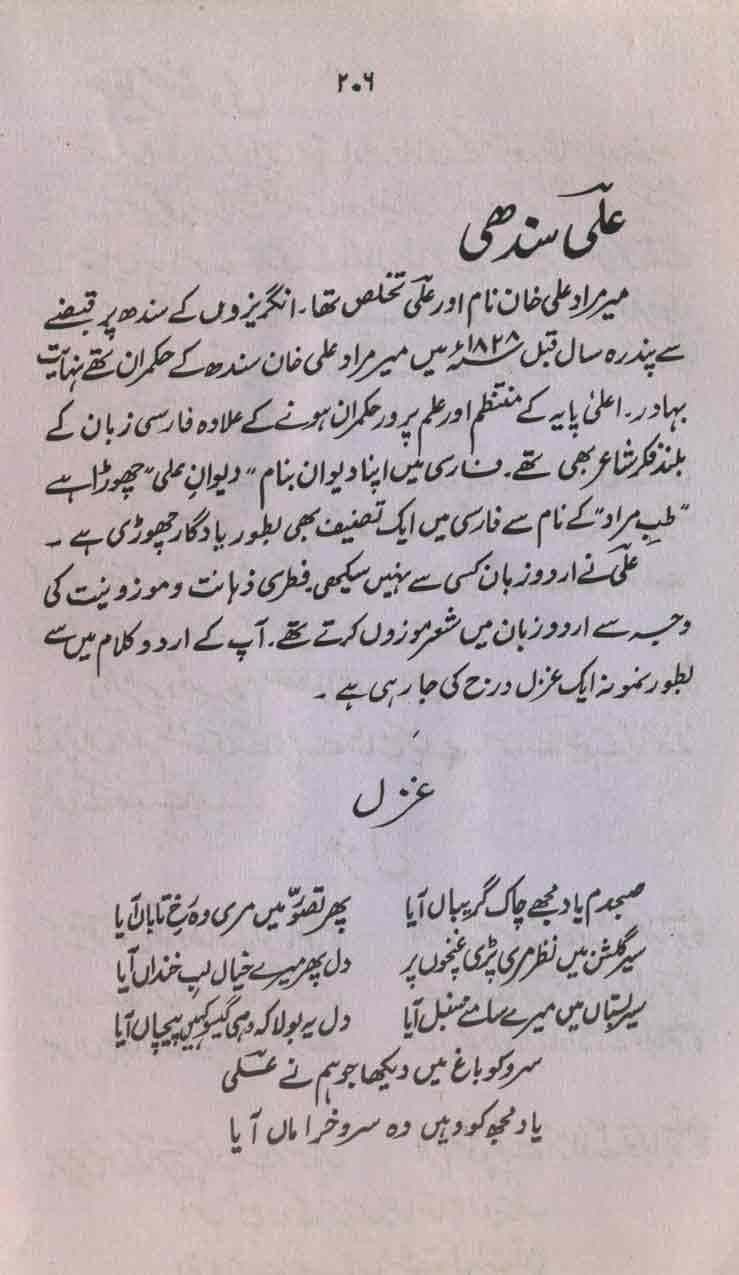 ۲۰۶
علی سندھی
میر مراد علی خان نام اور علی تخلص تھا۔ انگریزوں کے سندھ پر قبضے
سے پندرہ سال قبل ۱۸۲۸ء میں میر مراد علی خان سندھ کے حکمران تھے نہایت
بہادر۔ اعلیٰ پایہ کے منتظم اور علم پرور حکمران ہونے کے علاوہ فارسی زبان کے
بلند فکر شاعر بھی تھے۔ فارسی میں اپنا دیوان بنام "دیوانِ علی" چھوڑا ہے
"طبِ مراد" کے نام سے فارسی میں ایک تصنیف بھی بطور یادگار چھوڑی ہے۔
علی نے اردو زبان کسی سے نہیں سیکھی۔ فطری ذہانت و موزونیت کی
وجہ سے اردو زبان میں شعر موزوں کرتے تھے۔ آپ کے اردو کلام میں سے
بطور نمونہ ایک غزل درج کی جا رہی ہے۔
غزل
صبحدم یاد مجھے چاک گریباں آیا پھر تصوّر میں مری وہ رخِ تاباں آیا
سیر گلشن میں نظر مری پڑی غنچوں پر دل پھر میرے خیال لبِ خنداں آیا
سیر بستاں میں میرے سامنے سنبل آیا دل یہ بولا کہ وہی گیسو کہیں پیچاں آیا
سرو کو باغ میں دیکھا جو ہم نے علی
یاد مجھ کو وہیں وہ سرو خراماں آیا